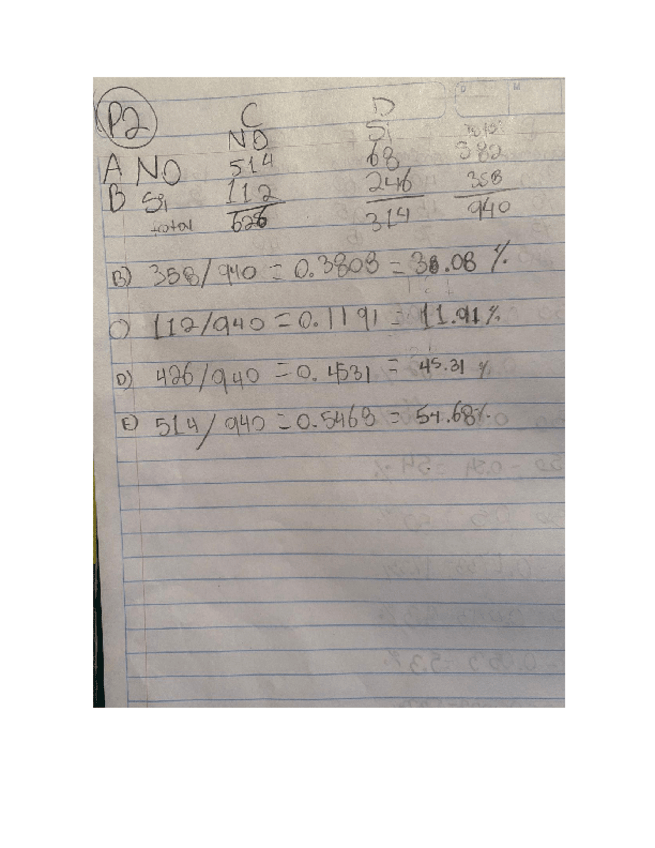 P2
C D
NO Si total
A NO 514 68 382
B Si 112 246 358
total 626 314 940
B) 358/940 = 0.3808 = 38.08 %
C) 112/940 = 0.1191 = 11.91%
D) 426/940 = 0.4531 = 45.31 %
E) 514/940 = 0.5468 = 54.68%